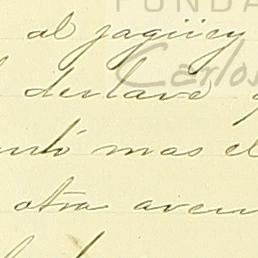 FUNDA
Carlos
al jagüey
declaré
mas el
otra aven